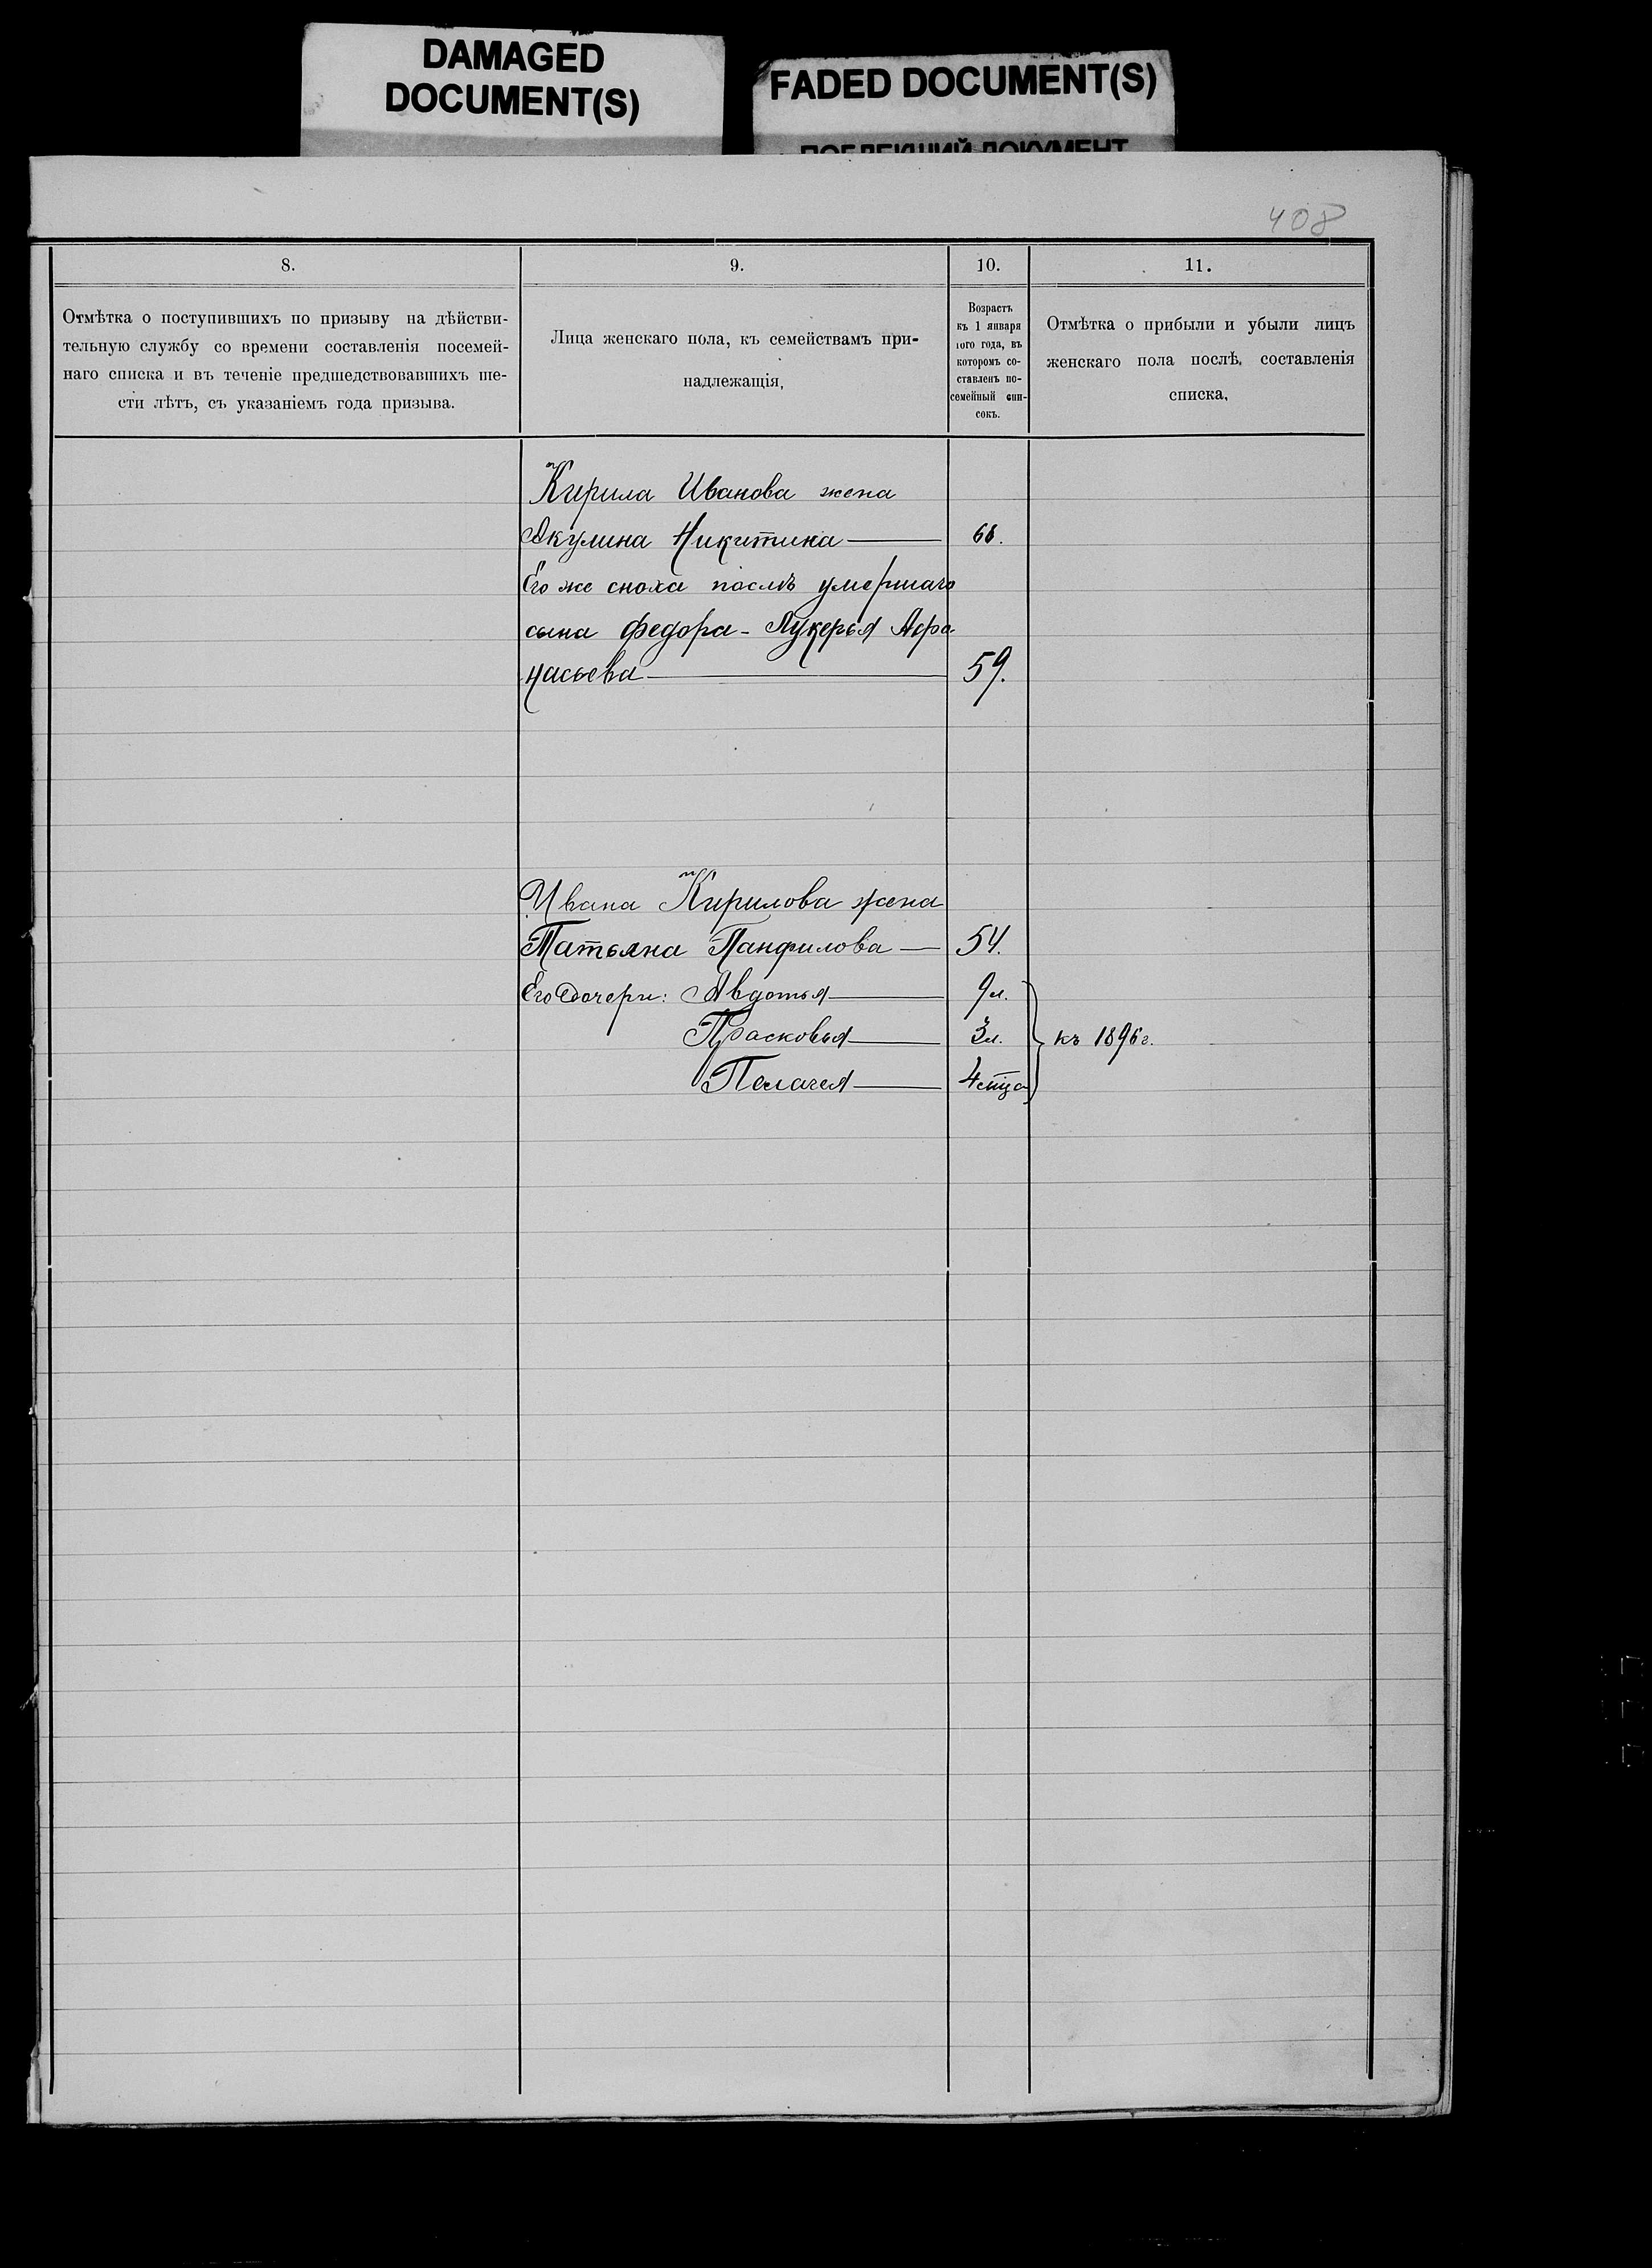 DAMAGED
DOCUMENT(S)
FADED DOCUMENT(S)
ПОБЛЕКШИЙ ДОКУМЕНТ
408
8.
9.
10.
11.
Отмѣтка о поступившихъ по призыву на дѣйстви-
тельную службу со времени составленія посемей-
наго списка и въ теченіе предшедствовавшихъ ше-
сти лѣтъ, съ указаніемъ года призыва.
Лица женскаго пола, къ семействамъ при-
надлежащія,
Возрастъ
къ 1 января
того года, въ
которомъ со-
ставленъ по-
семейный спи-
сокъ.
Отмѣтка о прибыли и убыли лицъ
женскаго пола послѣ, составленія
списка,
Кирила Иванова жена
Акулина Никитина —
Его же сноха послѣ умершаго
сына Федора - Лукерья Афа-
насьева — 59.
Ивана Кирилова жена
Татьяна Панфилова — 54.
Его дочери: Авдотья — 9 л.
Прасковья — 3 л. къ 1896 г.
Пелагея — 4 мца